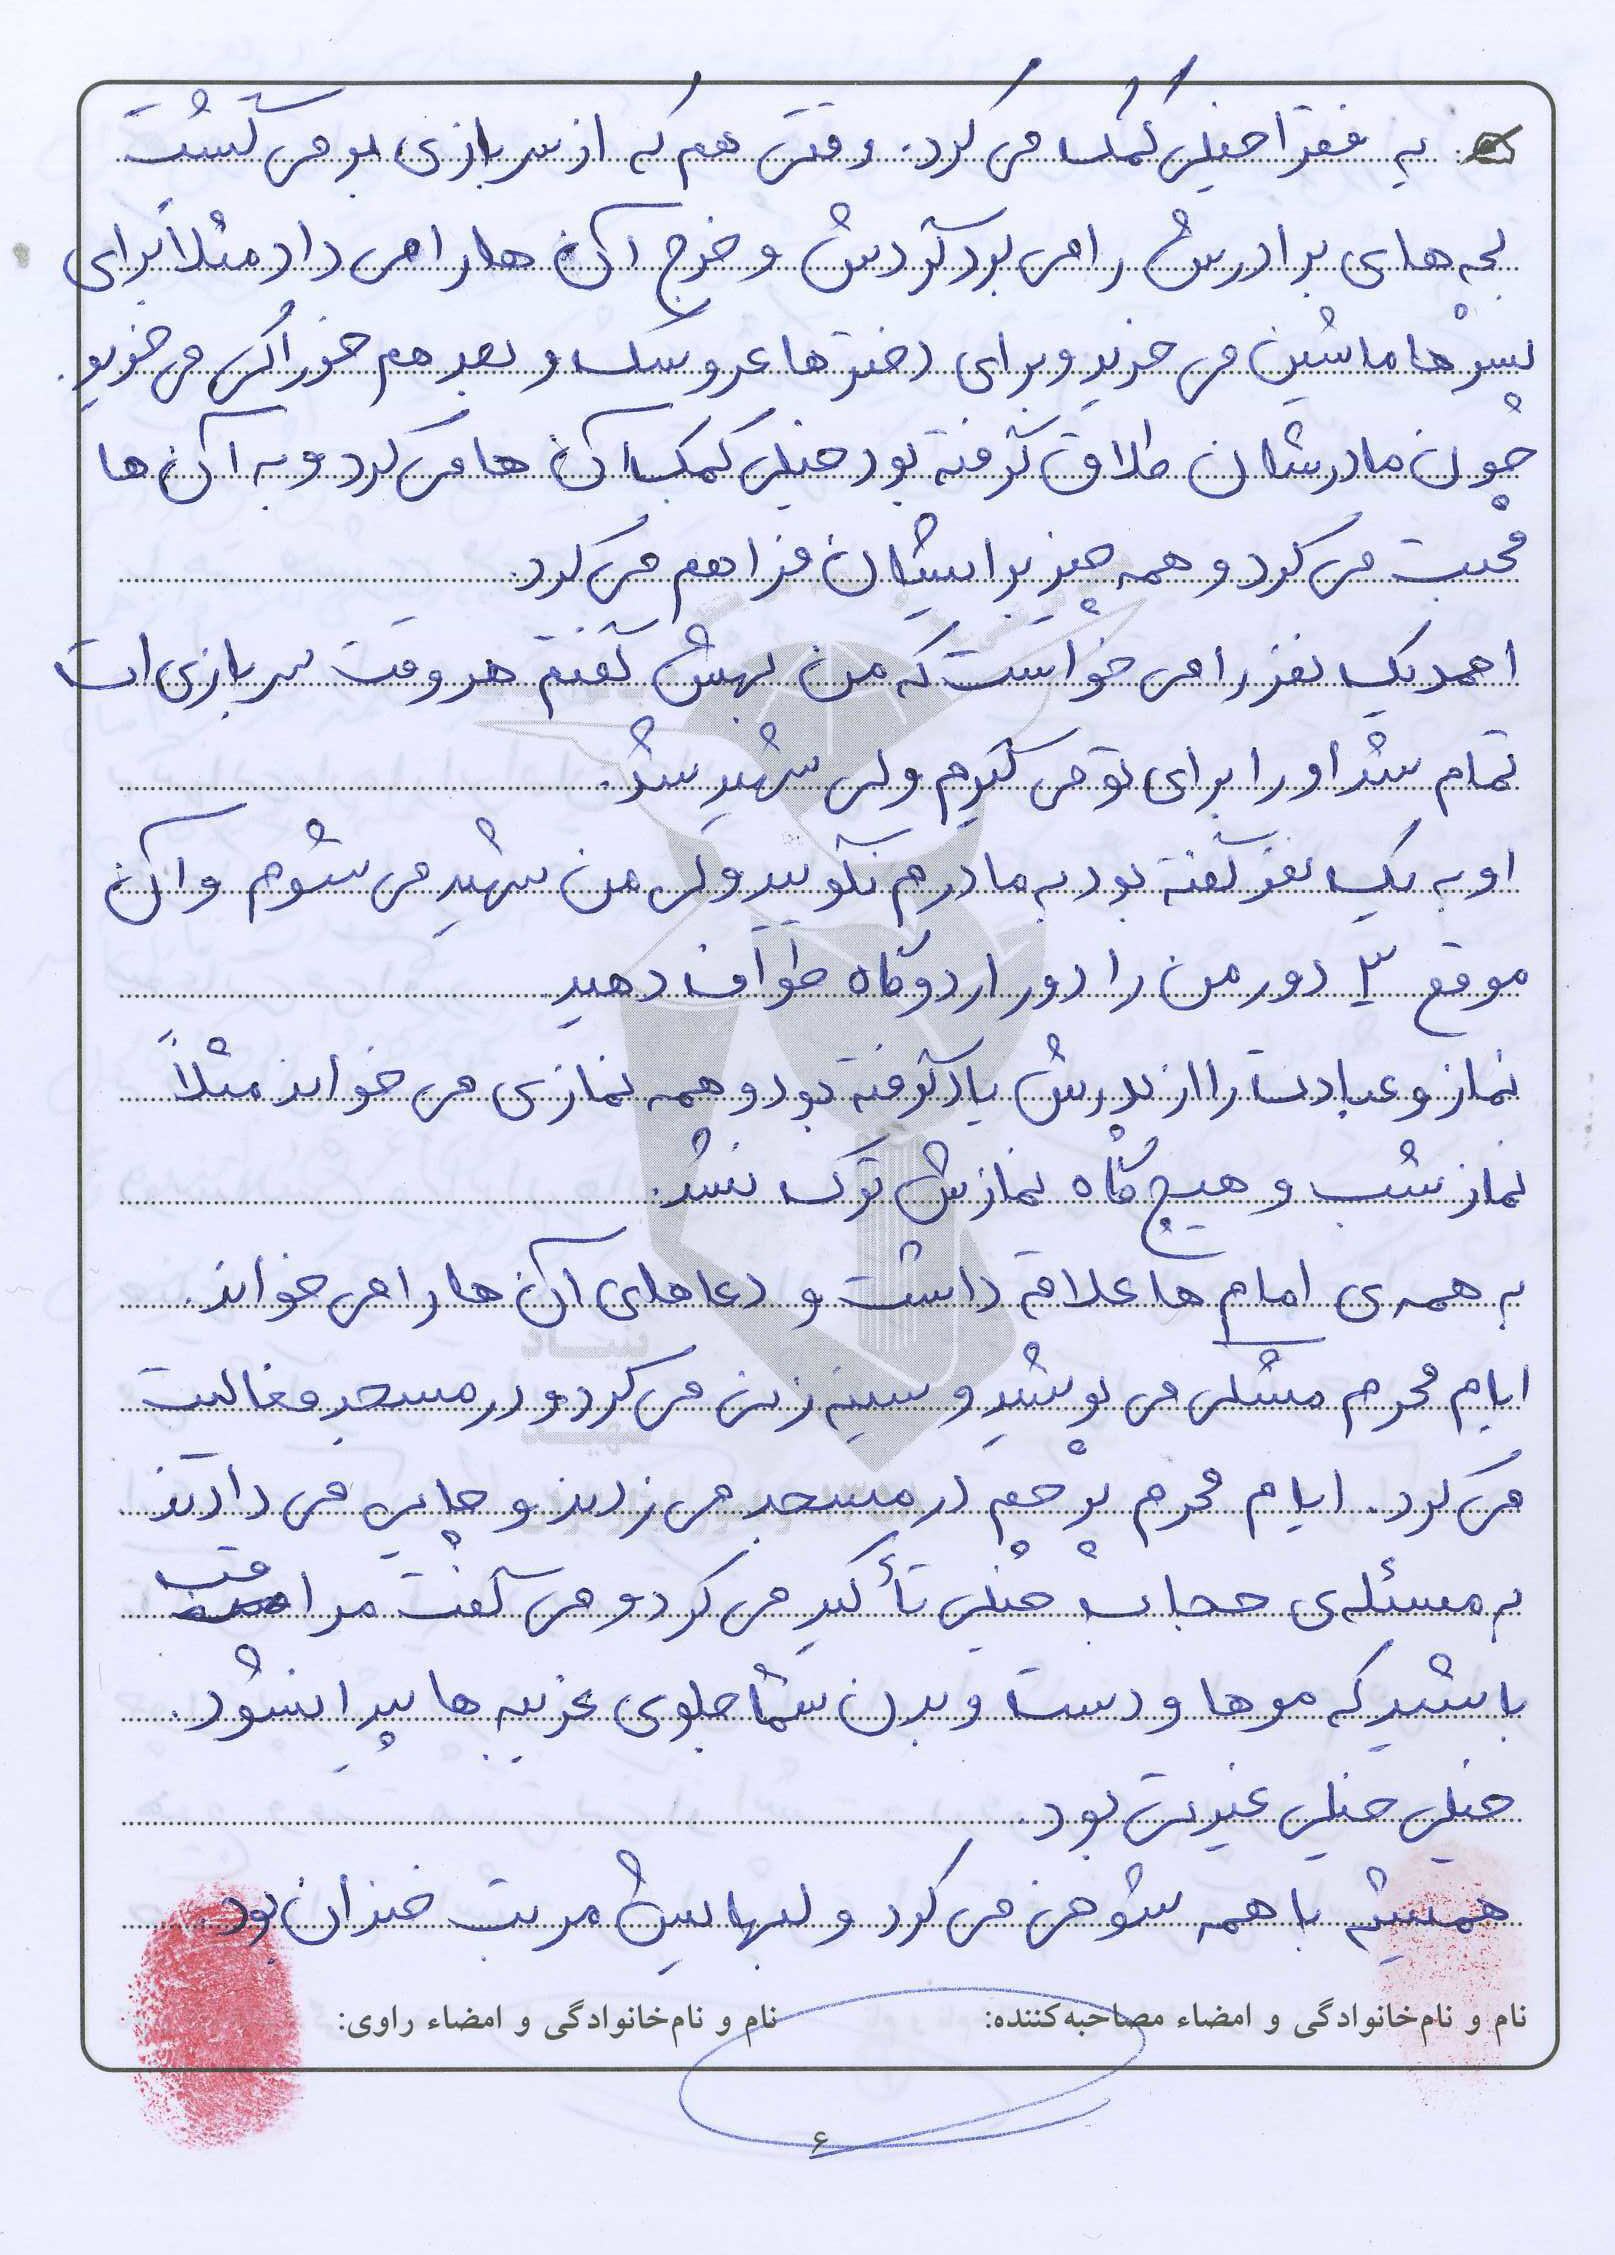 به فقرا خیلی کمک می کرد. وقتی هم که از سربازی بر می گشت
بچه های برادرش را می برد گردش و خرج آن ها را می داد مثلاً برای
پسرها ماشین می خرید و برای دخترها عروسک و بعد هم خوراکی می خرید.
چون مادرشان طلاق گرفته بود خیلی کمک آن ها می کرد و به آن ها
محبت می کرد و همه چیز برایشان فراهم می کرد.
احمد یک نفر را می خواست که من بهش گفتم هر وقت سربازی ات
تمام شد او را برای تو می گیرم ولی شهید شد.
او به یک نفر گفته بود به مادرم نگویید ولی من شهید می شوم و آن
موقع ۳ دور من را دور اردوگاه طواف دهید
نماز و عبادت را از پدرش یاد گرفته بود و همه نمازی می خواند مثلاً
نماز شب و هیچ گاه نمازش ترک نشد.
به همه ی امام ها علاقه داشت و دعاهای آن ها را می خواند.
ایام محرم مشکی می پوشید و سینه زنی می کرد و در مسجد فعالیت
می کرد. ایام محرم پرچم در مسجد می زدند و چایی می دادند
به مسئله ی حجاب خیلی تأکید می کرد و می گفت مراقب
باشید که موها و دست و بدن شما جلوی غریبه ها پیدا نشود.
خیلی خیلی غیرتی بود.
همیشه با همه شوخی می کرد و لبهایش مرتب خندان بود.
نام و نام‌خانوادگی و امضاء مصاحبه‌کننده: نام و نام‌خانوادگی و امضاء راوی:
۶